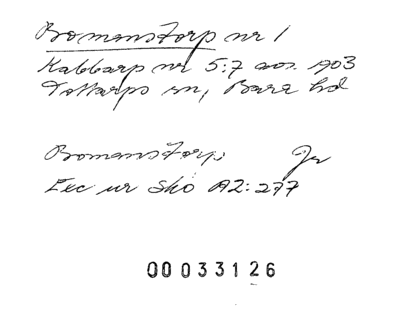 Bomanstorp nr 1
Kabbarp nr 5:7 avs. 1903
Tottarps sn, Bara hd
Bomanstorp Jr
Exc ur Sko A2:277
00033126